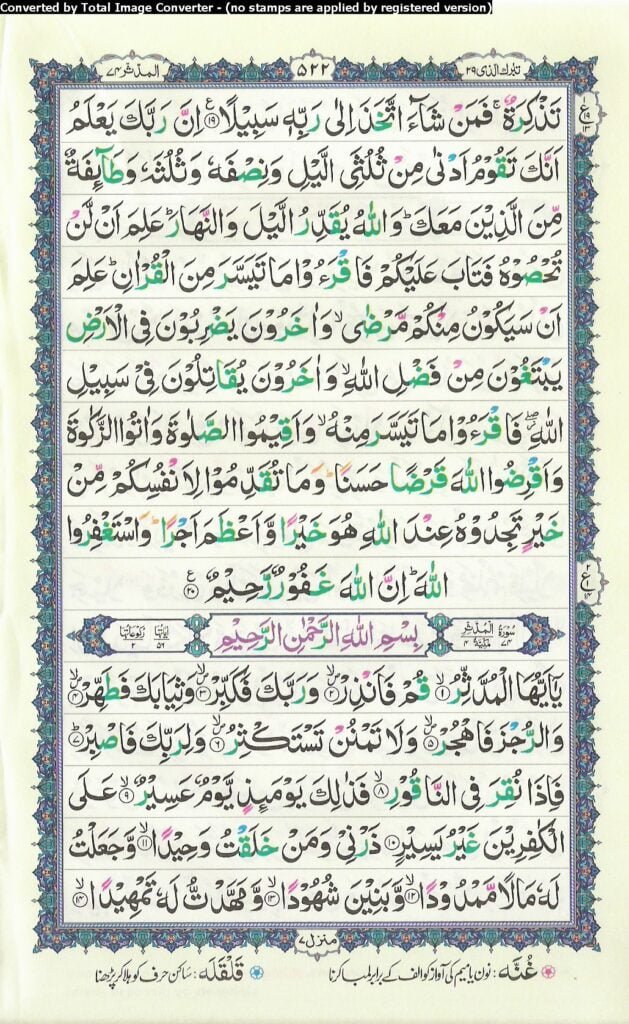 Converted by Total Image Converter - (no stamps are applied by registered version)
تبٰرك الذی ۲۹
۵۲۲
المدثر ۷۴
تَذْكِرَةٌ ۚ فَمَنْ شَآءَ اتَّخَذَ اِلٰی رَبِّهٖ سَبِیْلًا ﴿۱۹﴾ اِنَّ رَبَّكَ یَعْلَمُ
اَنَّكَ تَقُوْمُ اَدْنٰی مِنْ ثُلُثَیِ الَّیْلِ وَنِصْفَهٗ وَثُلُثَهٗ وَطَآىِٕفَةٌ
مِّنَ الَّذِیْنَ مَعَكَ ؕ وَاللّٰهُ یُقَدِّرُ الَّیْلَ وَالنَّهَارَ ؕ عَلِمَ اَنْ لَّنْ
تُحْصُوْهُ فَتَابَ عَلَیْكُمْ فَاقْرَءُوْا مَا تَیَسَّرَ مِنَ الْقُرْاٰنِ ؕ عَلِمَ
اَنْ سَیَكُوْنُ مِنْكُمْ مَّرْضٰی ۙ وَاٰخَرُوْنَ یَضْرِبُوْنَ فِی الْاَرْضِ
یَبْتَغُوْنَ مِنْ فَضْلِ اللّٰهِ ۙ وَاٰخَرُوْنَ یُقَاتِلُوْنَ فِیْ سَبِیْلِ
اللّٰهِ ۖ فَاقْرَءُوْا مَا تَیَسَّرَ مِنْهُ ۙ وَاَقِیْمُوا الصَّلٰوةَ وَاٰتُوا الزَّكٰوةَ
وَاَقْرِضُوا اللّٰهَ قَرْضًا حَسَنًا ؕ وَمَا تُقَدِّمُوْا لِاَنْفُسِكُمْ مِّنْ
خَیْرٍ تَجِدُوْهُ عِنْدَ اللّٰهِ هُوَ خَیْرًا وَّاَعْظَمَ اَجْرًا ؕ وَاسْتَغْفِرُوا
اللّٰهَ ؕ اِنَّ اللّٰهَ غَفُوْرٌ رَّحِیْمٌ ﴿۲۰﴾
سورة المدثر مكية ۷۴ ۴
بِسْمِ اللّٰهِ الرَّحْمٰنِ الرَّحِیْمِ
اٰیاتها ۵۶ ركوعاتها ۲
یٰۤاَیُّهَا الْمُدَّثِّرُ ﴿۱﴾ قُمْ فَاَنْذِرْ ﴿۲﴾ وَرَبَّكَ فَكَبِّرْ ﴿۳﴾ وَثِیَابَكَ فَطَهِّرْ ﴿۴﴾
وَالرُّجْزَ فَاهْجُرْ ﴿۵﴾ وَلَا تَمْنُنْ تَسْتَكْثِرُ ﴿۶﴾ وَلِرَبِّكَ فَاصْبِرْ ﴿۷﴾
فَاِذَا نُقِرَ فِی النَّاقُوْرِ ﴿۸﴾ فَذٰلِكَ یَوْمَىِٕذٍ یَّوْمٌ عَسِیْرٌ ﴿۹﴾ عَلَی
الْكٰفِرِیْنَ غَیْرُ یَسِیْرٍ ﴿۱۰﴾ ذَرْنِیْ وَمَنْ خَلَقْتُ وَحِیْدًا ﴿۱۱﴾ وَّجَعَلْتُ
لَهٗ مَالًا مَّمْدُوْدًا ﴿۱۲﴾ وَّبَنِیْنَ شُهُوْدًا ﴿۱۳﴾ وَّمَهَّدْتُّ لَهٗ تَمْهِیْدًا ﴿۱۴﴾
منزل ۷
غُنَّه : نون یا میم کی آواز کو الف کے برابر لمبا کرنا
قَلْقَلَه : ساکن حرف کو ہلا کر پڑھنا